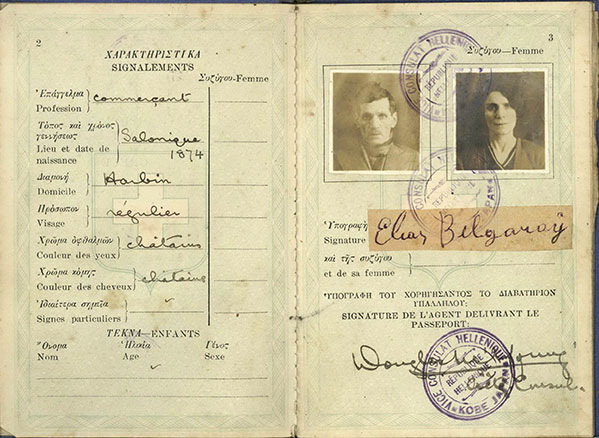 2
ΧΑΡΑΚΤΗΡΙΣΤΙΚΑ
SIGNALEMENTS
Συζύγου-Femme
Ἐπάγγελμα
Profession
commerçant
Τόπος καὶ χρόνος
γεννήσεως
Lieu et date de
naissance
Salonique
1874
Διαμονή
Domicile
Harbin
Πρόσωπον
Visage
régulier
Χρῶμα ὀφθαλμῶν
Couleur des yeux
châtains
Χρῶμα κόμης
Couleur des cheveux
châtains
Ἰδιαίτερα σημεῖα
Signes particuliers
ΤΕΚΝΑ—ENFANTS
Ὄνομα Ἡλικία Γένος
Nom Age Sexe
3
Συζύγου—Femme
CONSULAT HELLENIQUE
RÉPUBLIQUE
Ὑπογραφὴ
Signature
Elias
καὶ τῆς συζύγου
et de sa femme
ΥΠΟΓΡΑΦΗ ΤΟΥ ΧΟΡΗΓΗΣΑΝΤΟΣ ΤΟ ΔΙΑΒΑΤΗΡΙΟΝ
ΥΠΑΛΛΗΛΟΥ:
SIGNATURE DE L'AGENT DELIVRANT LE
PASSEPORT:
VICE CONSULAT HELLENIQUE
RÉPUBLIQUE
KOBE JAPAN